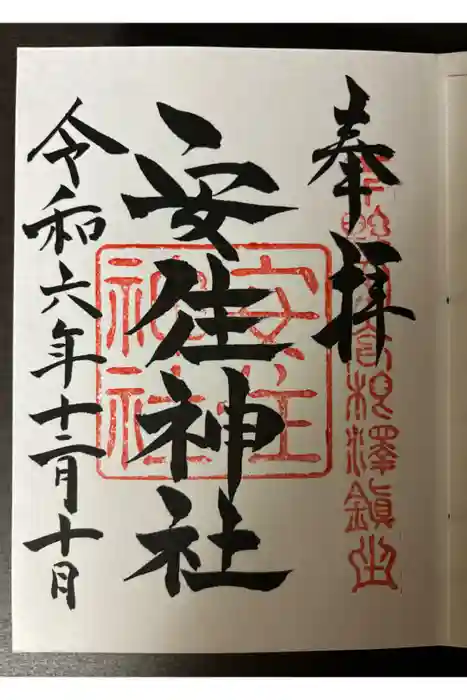 奉拝
根澤鎮
安住神社
安住
神社
令和六年十二月十日